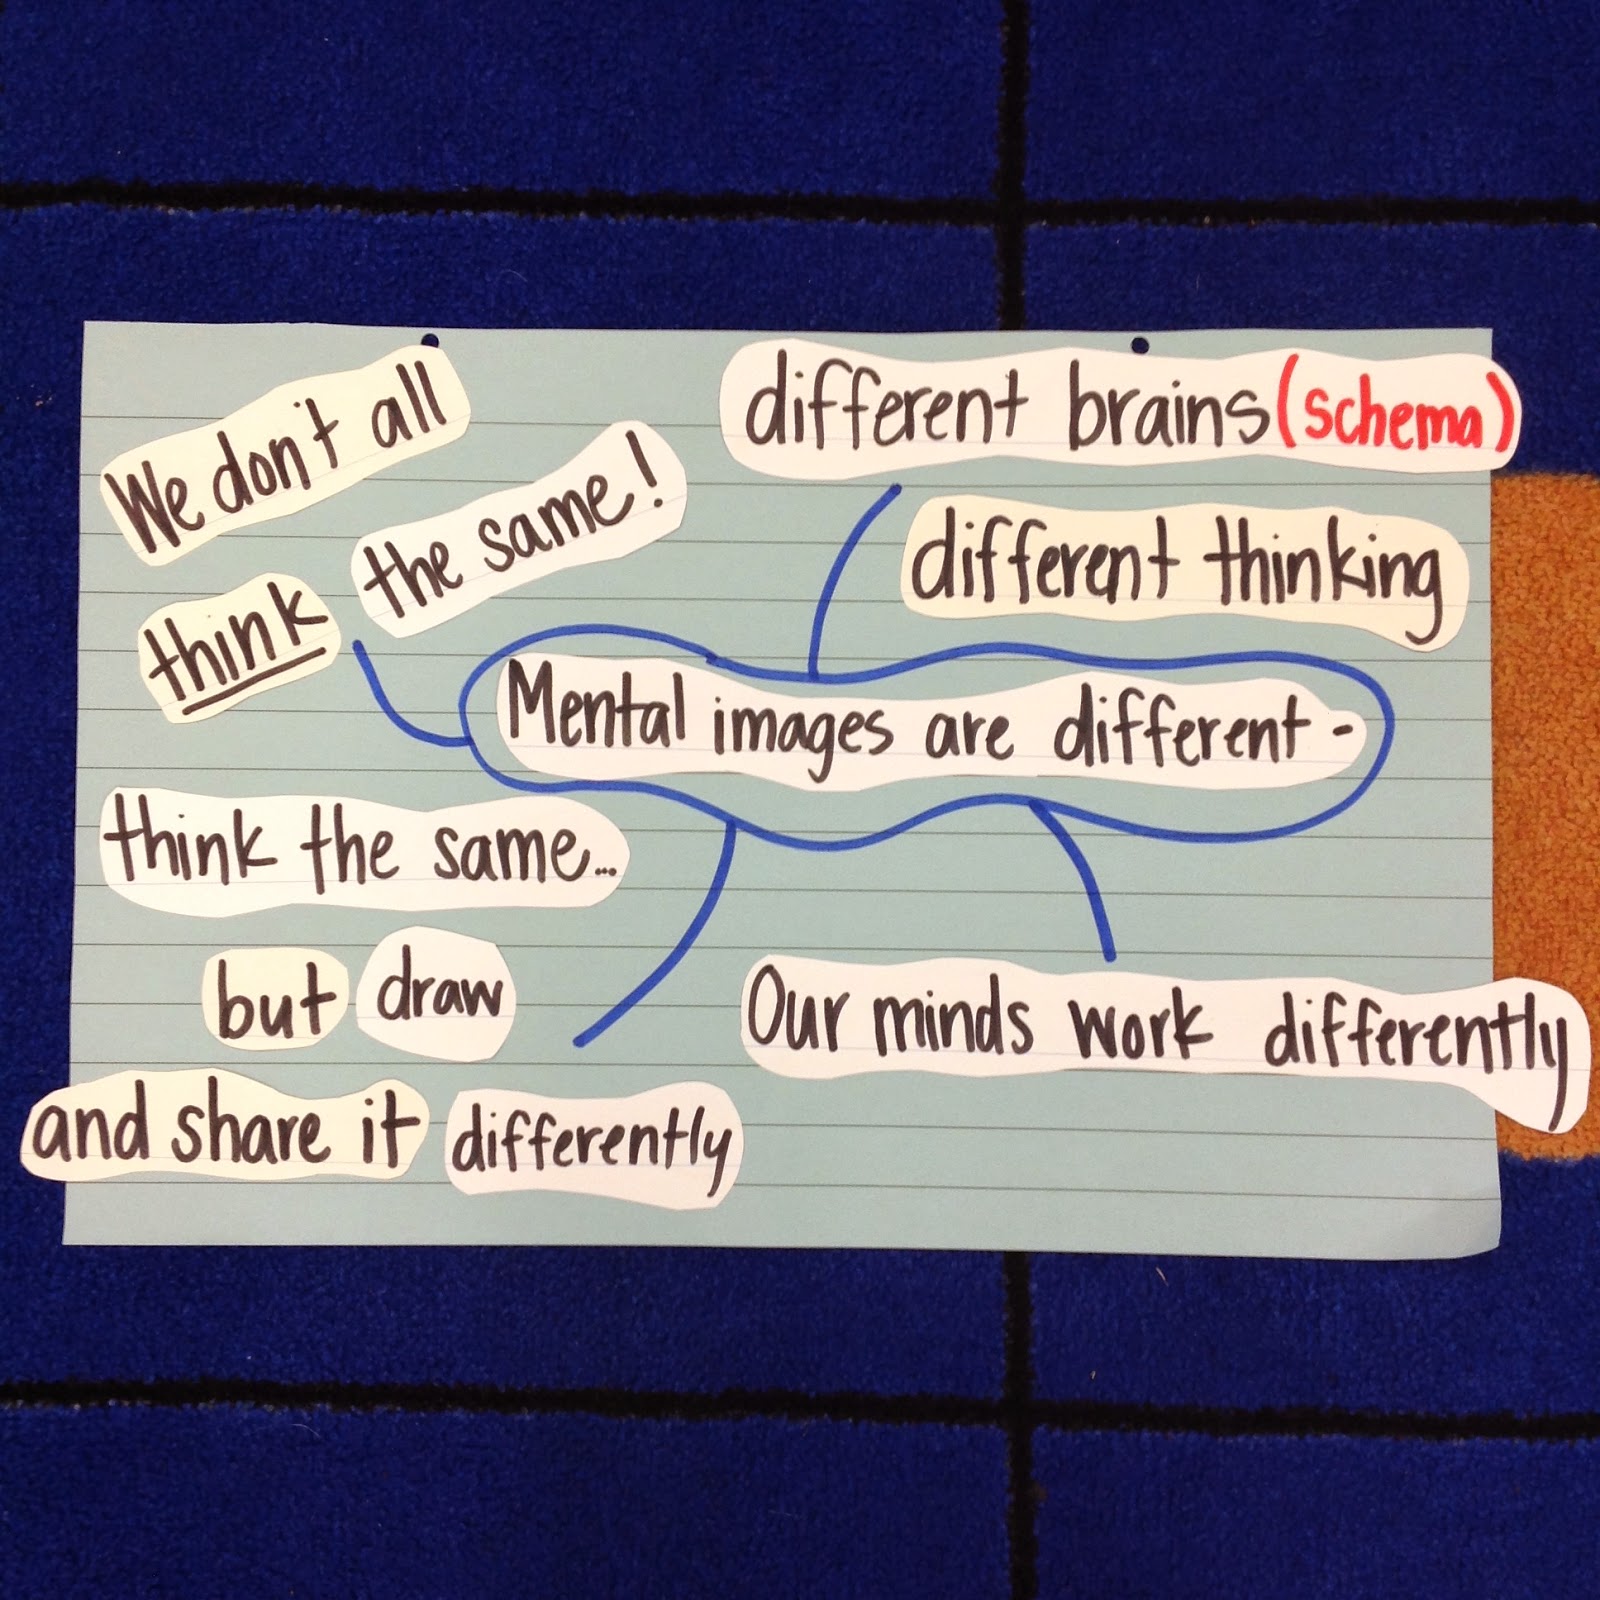 We don't all
think the same!
different brains (schema)
different thinking
Mental images are different -
think the same...
but draw
and share it differently
Our minds work differently